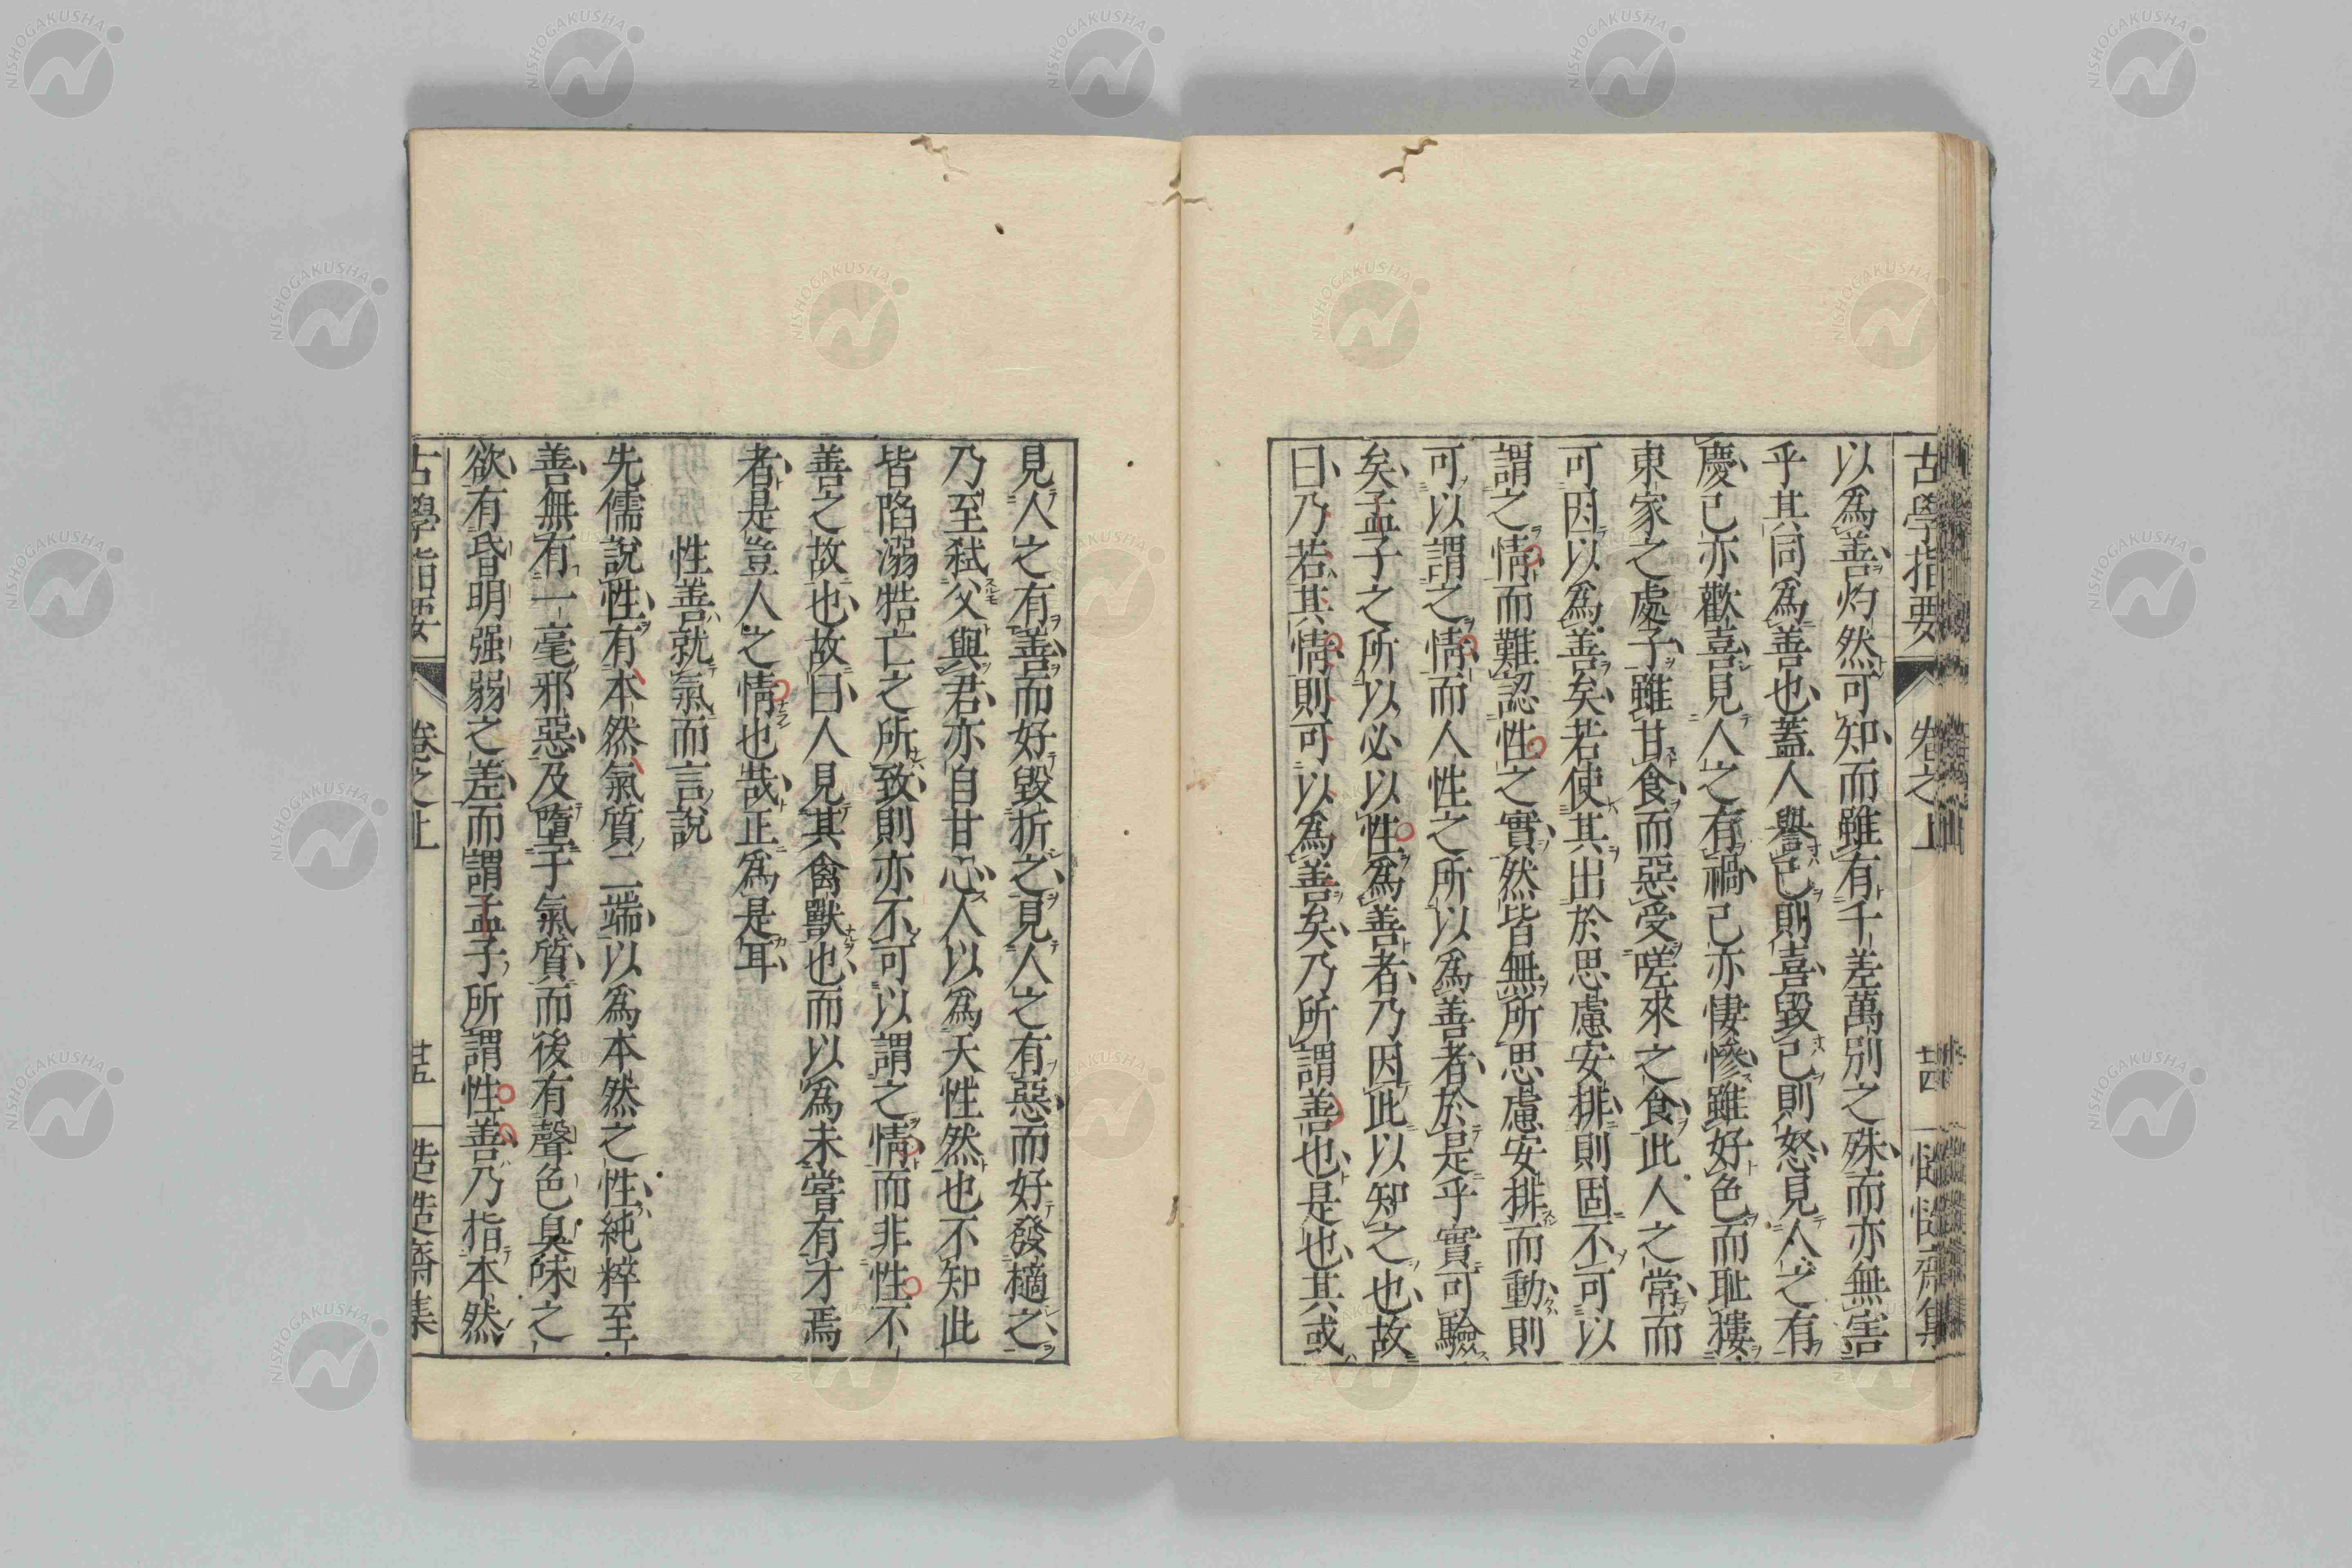 古學指要 卷之上 廿四 慥慥齋集
以爲善灼然可知而雖有千差萬別之殊而亦無害
乎其同爲善也蓋人譽己則喜毀己則怒見人之有
慶己亦歡喜見人之有禍己亦悽慘雖好色而耻摟
東家之處子雖甘食而惡受嗟來之食此人之常而
可因以爲善矣若使其出於思慮安排則固不可以
謂之情而難認性之實然皆無所思慮安排而動則
可以謂之情而人性之所以爲善者於是乎實可驗
矣孟子之所以必以性爲善者乃因此以知之也故
曰乃若其情則可以爲善矣乃所謂善也是也其或
見人之有善而好毀折之見人之有惡而好發擿之
乃至弑父與君亦自甘心人以爲天性然也不知此
皆陷溺牿亡之所致則亦不可以謂之情而非性不
善之故也故曰人見其禽獸也而以爲未嘗有才焉
者是豈人之情也哉正爲是耳
性善就氣而言說
先儒說性有本然氣質二端以爲本然之性純粹至
善無有一毫邪惡及墮于氣質而後有聲色臭味之
欲有昏明强弱之差而謂孟子所謂性善乃指本然
古學指要 卷之上 廿五 慥慥齋集
NISHOGAKUSHA